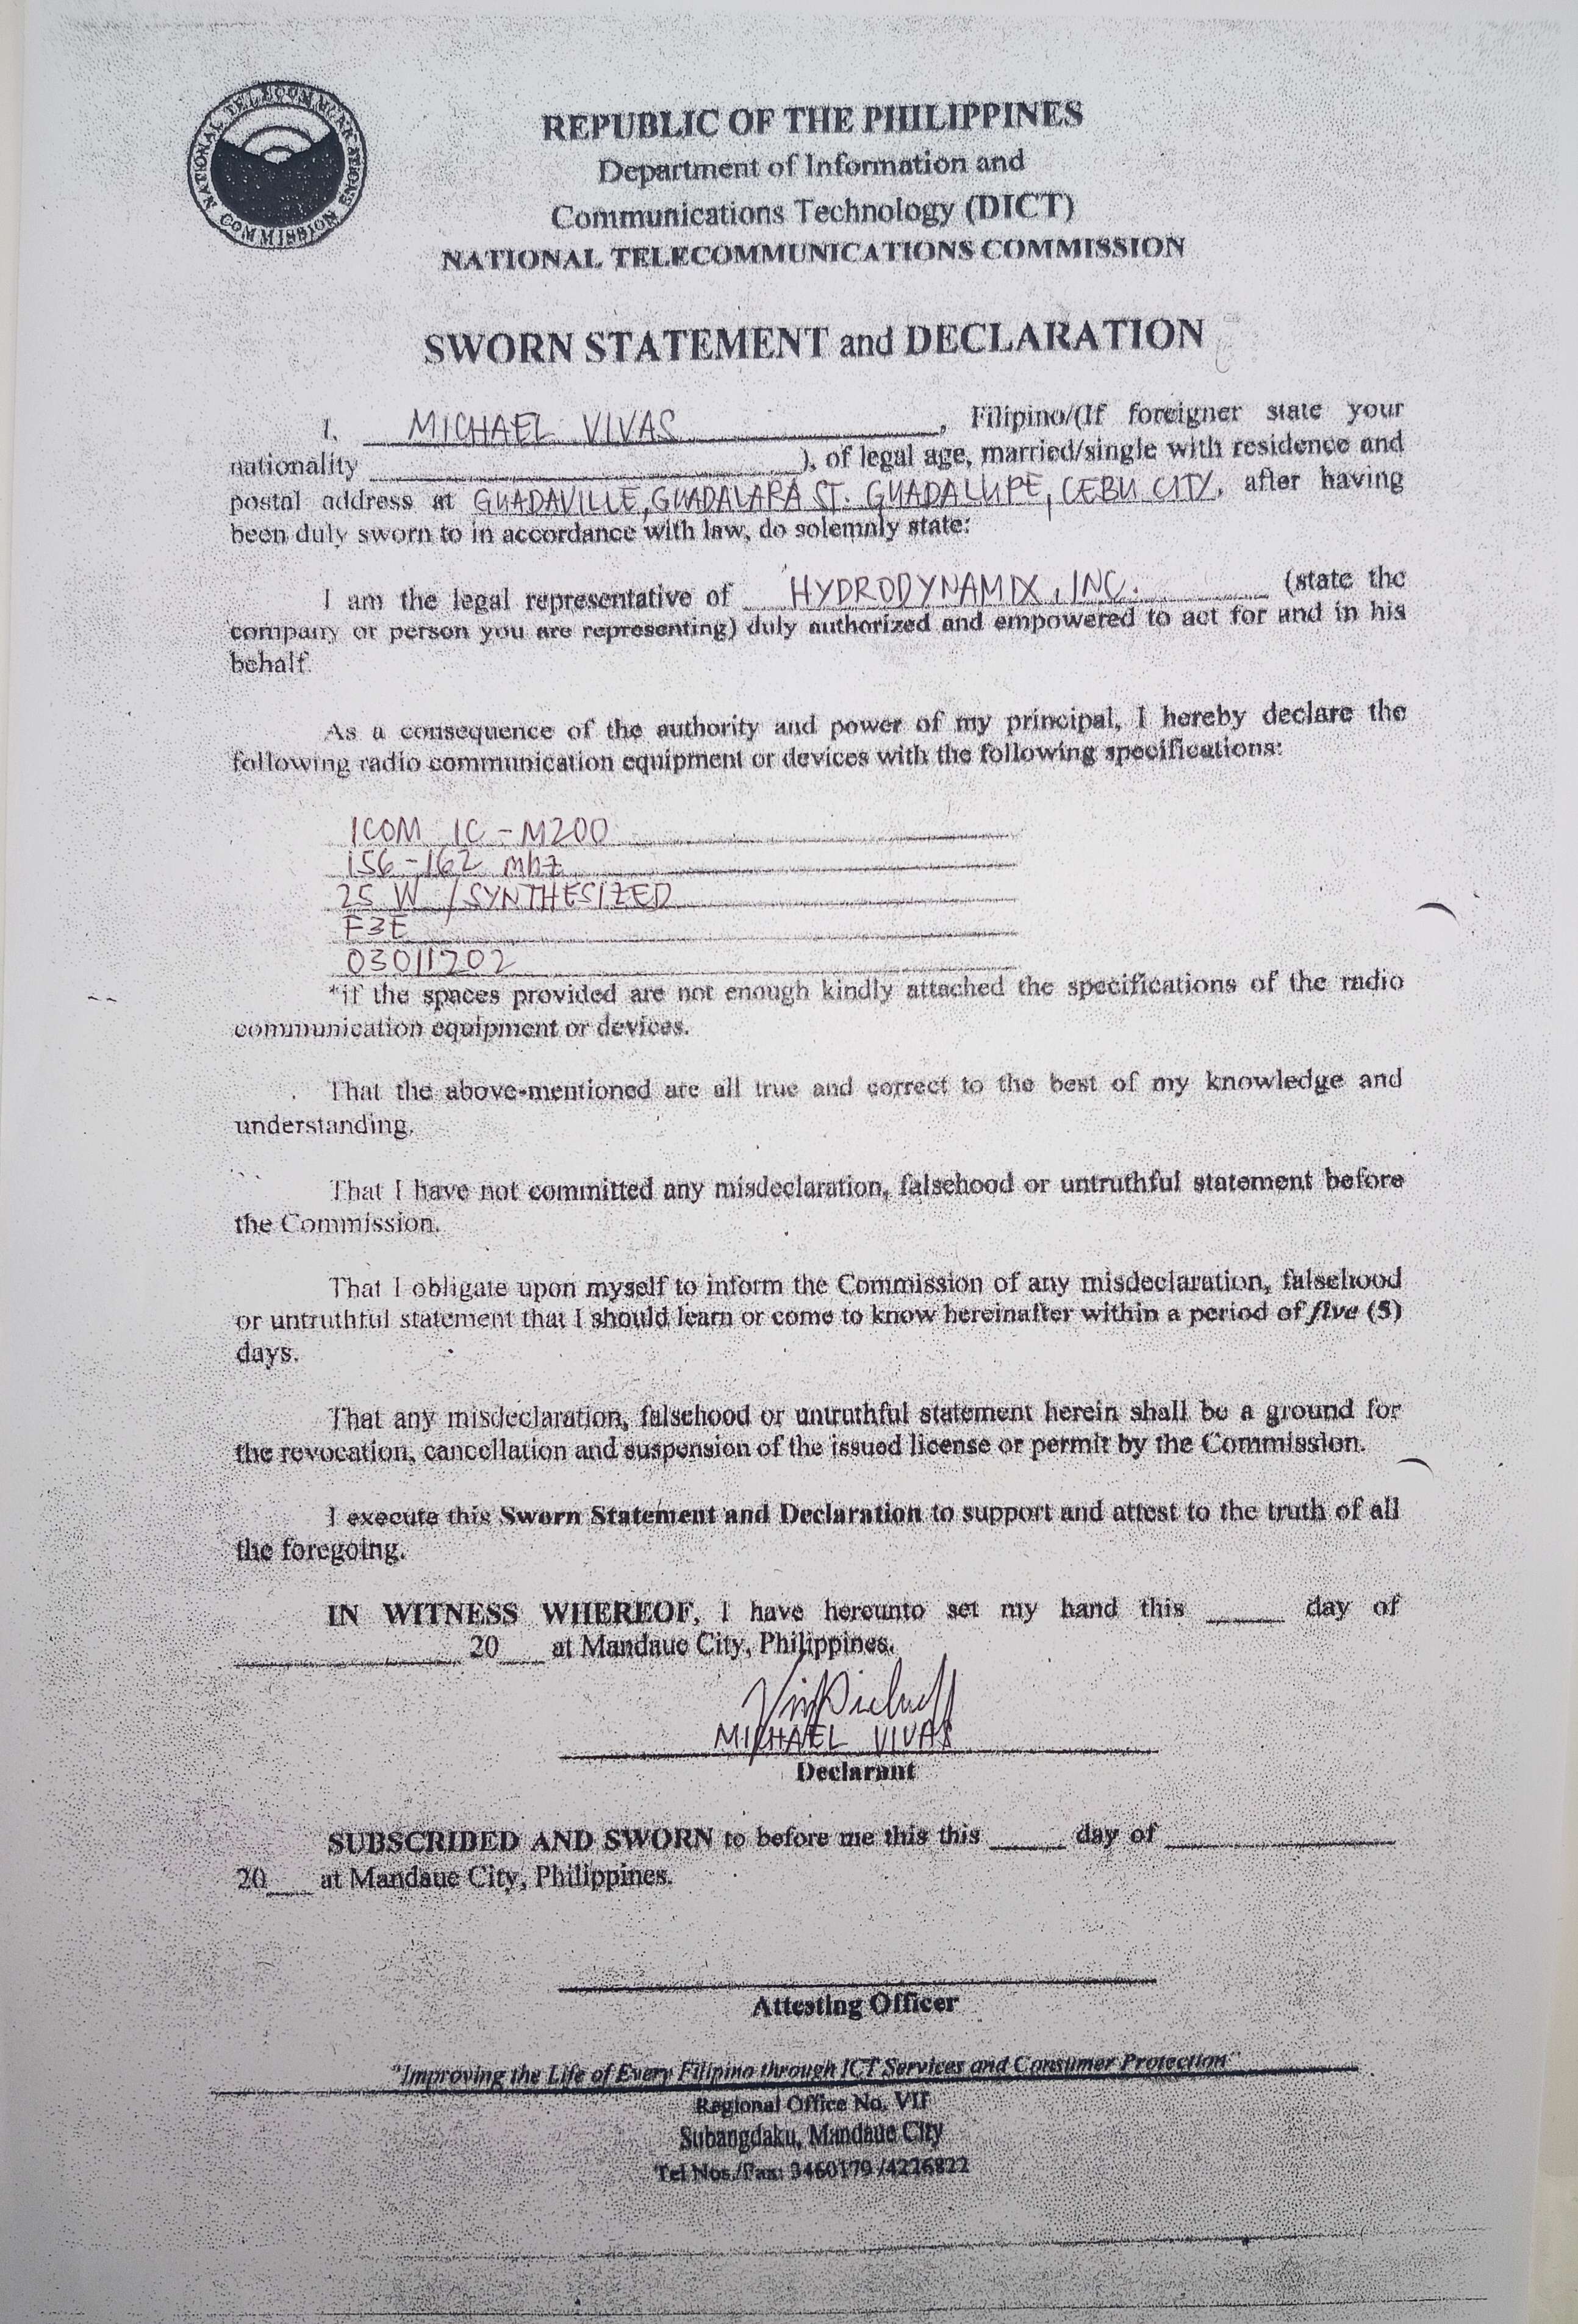 NATIONAL TELECOMMUNICATIONS COMMISSION
REPUBLIC OF THE PHILIPPINES
Department of Information and
Communications Technology (DICT)
NATIONAL TELECOMMUNICATIONS COMMISSION
SWORN STATEMENT and DECLARATION
I, MICHAEL VIVAS, Filipino/(If foreigner state your
nationality ____________), of legal age, married/single with residence and
postal address at GUADAVILLE, GUADALARA ST. GUADALUPE, CEBU CITY, after having
been duly sworn to in accordance with law, do solemnly state:
I am the legal representative of HYDRODYNAMIX, INC. (state the
company or person you are representing) duly authorized and empowered to act for and in his
behalf.
As a consequence of the authority and power of my principal, I hereby declare the
following radio communication equipment or devices with the following specifications:
ICOM IC-M200
156-162 mhz
25 W / SYNTHESIZED
F3E
03011202
*if the spaces provided are not enough kindly attached the specifications of the radio
communication equipment or devices.
That the above-mentioned are all true and correct to the best of my knowledge and
understanding.
That I have not committed any misdeclaration, falsehood or untruthful statement before
the Commission.
That I obligate upon myself to inform the Commission of any misdeclaration, falsehood
or untruthful statement that I should learn or come to know hereinafter within a period of five (5)
days.
That any misdeclaration, falsehood or untruthful statement herein shall be a ground for
the revocation, cancellation and suspension of the issued license or permit by the Commission.
I execute this Sworn Statement and Declaration to support and attest to the truth of all
the foregoing.
IN WITNESS WHEREOF, I have hereunto set my hand this _____ day of
____________ 20___ at Mandaue City, Philippines.
MICHAEL VIVAS
Declarant
SUBSCRIBED AND SWORN to before me this this _____ day of ____________
20___ at Mandaue City, Philippines.
Attesting Officer
"Improving the Life of Every Filipino through ICT Services and Consumer Protection"
Regional Office No. VII
Subangdaku, Mandaue City
Tel Nos./Fax: 3460179 /4226822